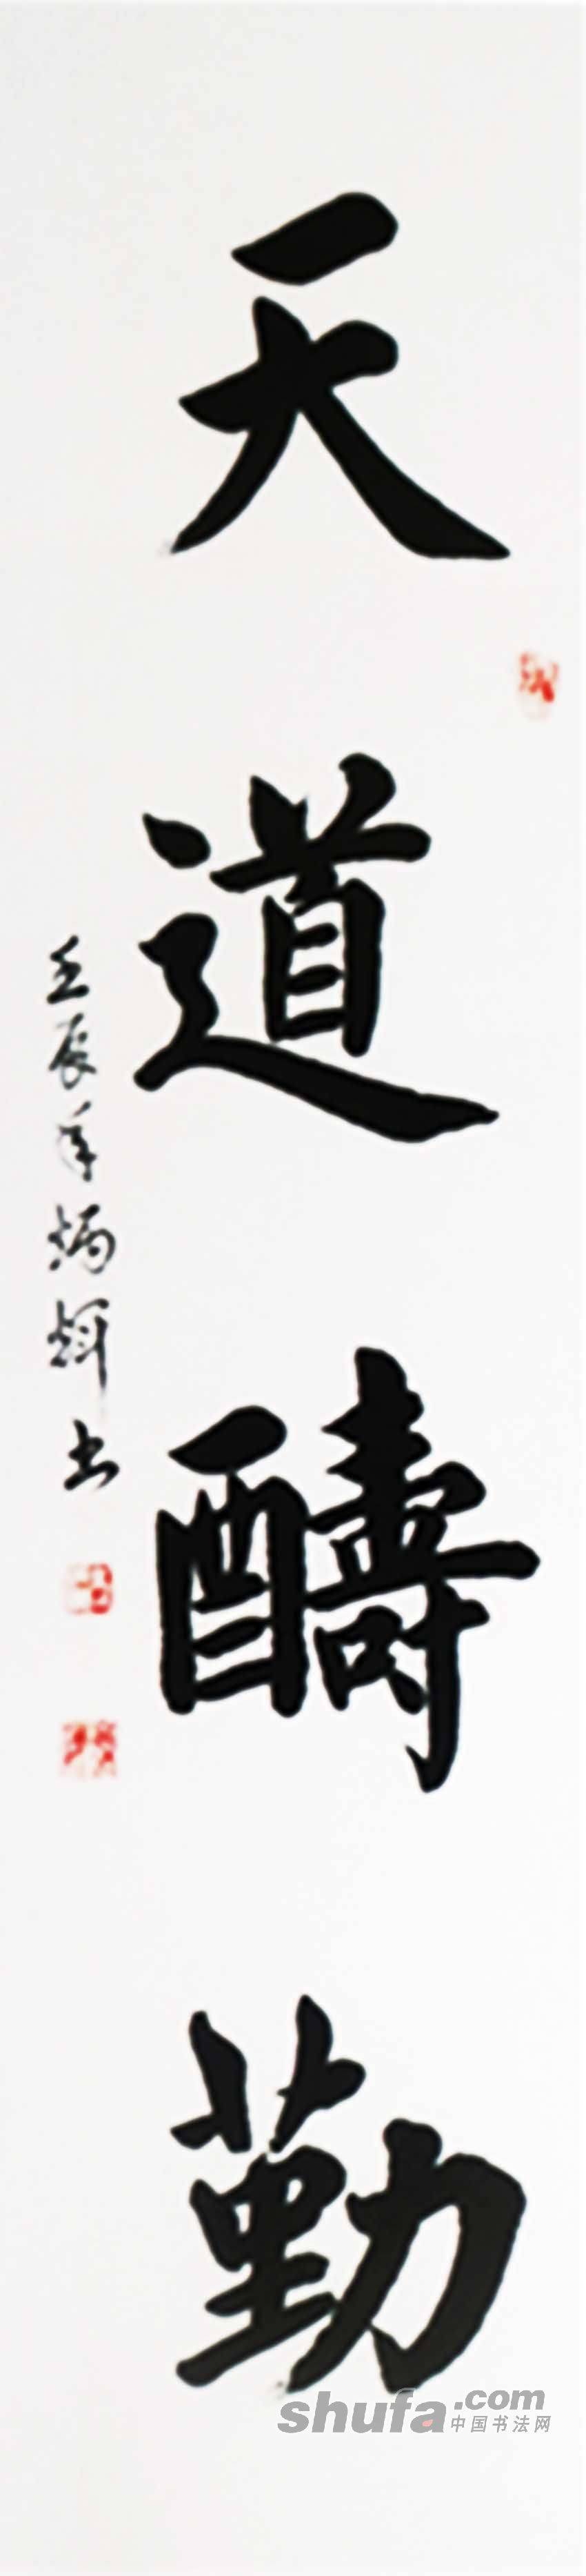 天道酬勤
壬辰年炳輝书
shufa.com
中国书法网